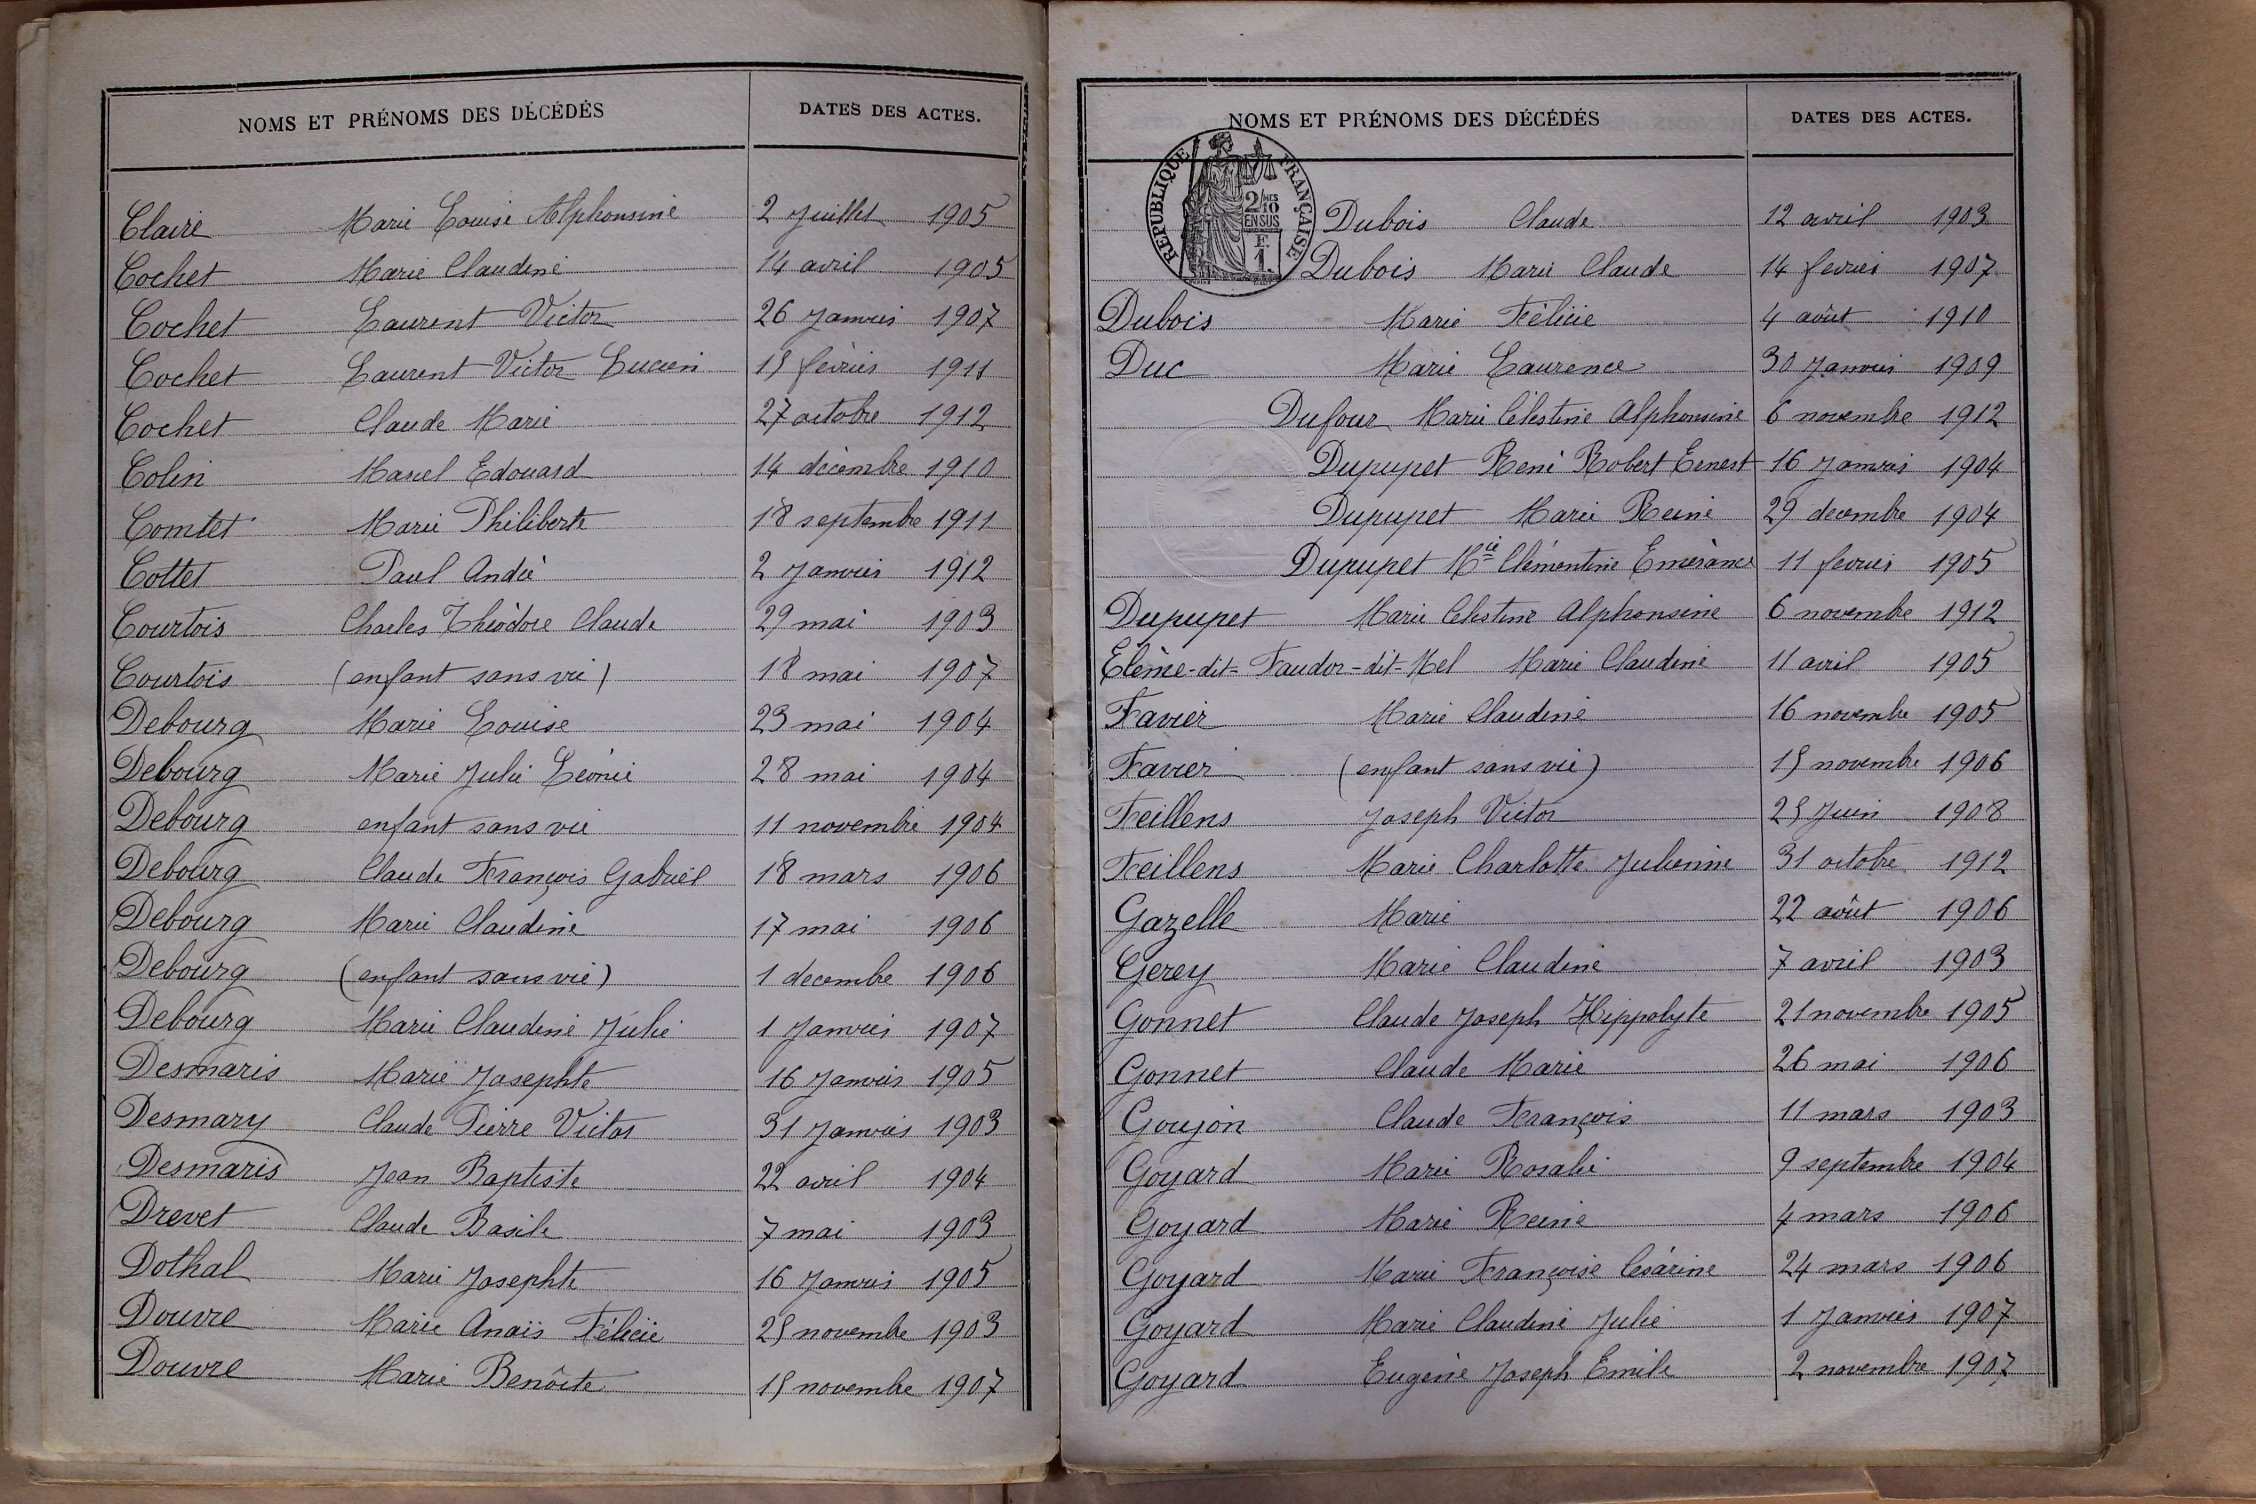 NOMS ET PRÉNOMS DES DÉCÉDÉS DATES DES ACTES.
Claire Marie Louise Alphonsine 2 Juillet 1905
Cochet Marie Claudine 14 avril 1905
Cochet Laurent Victor 26 Janvier 1907
Cochet Laurent Victor Lucien 15 février 1911
Cochet Claude Marie 27 octobre 1912
Colin Marcel Edouard 14 décembre 1910
Comtet Marie Philiberte 18 septembre 1911
Cottet Paul André 2 Janvier 1912
Courtois Charles Théodore Claude 29 mai 1903
Courtois (enfant sans vie) 18 mai 1907
Debourg Marie Louise 23 mai 1904
Debourg Marie Julie Léonie 28 mai 1904
Debourg enfant sans vie 11 novembre 1904
Debourg Claude François Gabriel 18 mars 1906
Debourg Marie Claudine 17 mai 1906
Debourg (enfant sans vie) 1 decembre 1906
Debourg Marie Claudine Julie 1 Janvier 1907
Desmaris Marie Josephte 16 Janvier 1905
Desmary Claude Pierre Victor 31 Janvier 1903
Desmaris Jean Baptiste 22 avril 1904
Drevet Claude Basile 7 mai 1903
Dothal Marie Josephte 16 Janvier 1905
Douvre Marie Anaïs Félicie 25 novembre 1903
Douvre Marie Benôite 15 novembre 1907
NOMS ET PRÉNOMS DES DÉCÉDÉS DATES DES ACTES.
RÉPUBLIQUE FRANÇAISE
2/10 EN SUS
F.
1.
Dubois Claude 12 avril 1903
Dubois Marie Claude 14 fevrier 1907
Dubois Marie Félicie 4 août 1910
Duc Marie Laurence 30 Janvier 1909
Dufour Marie Célestine Alphonsine 6 novembre 1912
Dupupet René Robert Ernest 16 Janvier 1904
Dupupet Marie Reine 29 decembre 1904
Dupupet Mie Clémentine Emérance 11 fevrier 1905
Dupupet Marie Célestine Alphonsine 6 novembre 1912
Elème-dit=Faudor=dit=Mel Marie Claudine 11 avril 1905
Favier Marie Claudine 16 novembre 1905
Favier (enfant sans vie) 15 novembre 1906
Feillens Joseph Victor 25 Juin 1908
Feillens Marie Charlotte Julienne 31 octobre 1912
Gazelle Marie 22 août 1906
Gerey Marie Claudine 7 avril 1903
Gonnet Claude Joseph Hippolyte 21 novembre 1905
Gonnet Claude Marie 26 mai 1906
Goujon Claude François 11 mars 1903
Goyard Marie Rosalie 9 septembre 1904
Goyard Marie Reine 4 mars 1906
Goyard Marie Françoise Césarine 24 mars 1906
Goyard Marie Claudine Julie 1 Janvier 1907
Goyard Eugène Joseph Emile 2 novembre 1907